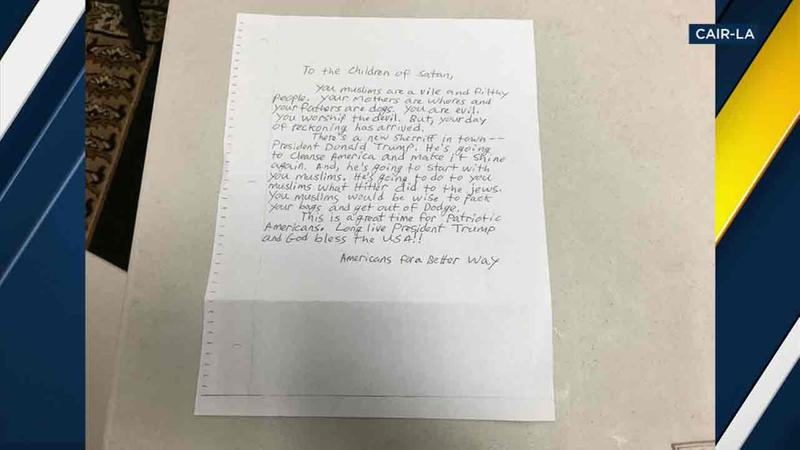 CAIR-LA
To the children of Satan,
You muslims are a vile and filthy
people. Your mothers are whores and
your fathers are dogs. You are evil.
You worship the devil. But, your day
of reckoning has arrived.
There's a new sherriff in town--
President Donald Trump. He's going
to cleanse America and make it shine
again. And, he's going to start with
you muslims. He's going to do to you
muslims what Hitler did to the jews.
You muslims would be wise to pack
your bags and get out of Dodge.
This is a great time for Patriotic
Americans. Long live President Trump
and God bless the USA!!
Americans for a Better Way